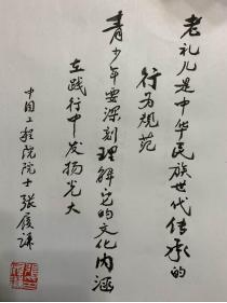 老礼儿是中华民族世代传承的
行为规范
青少年要深刻理解它的文化内涵
在践行中发扬光大
中国工程院院士张履谦